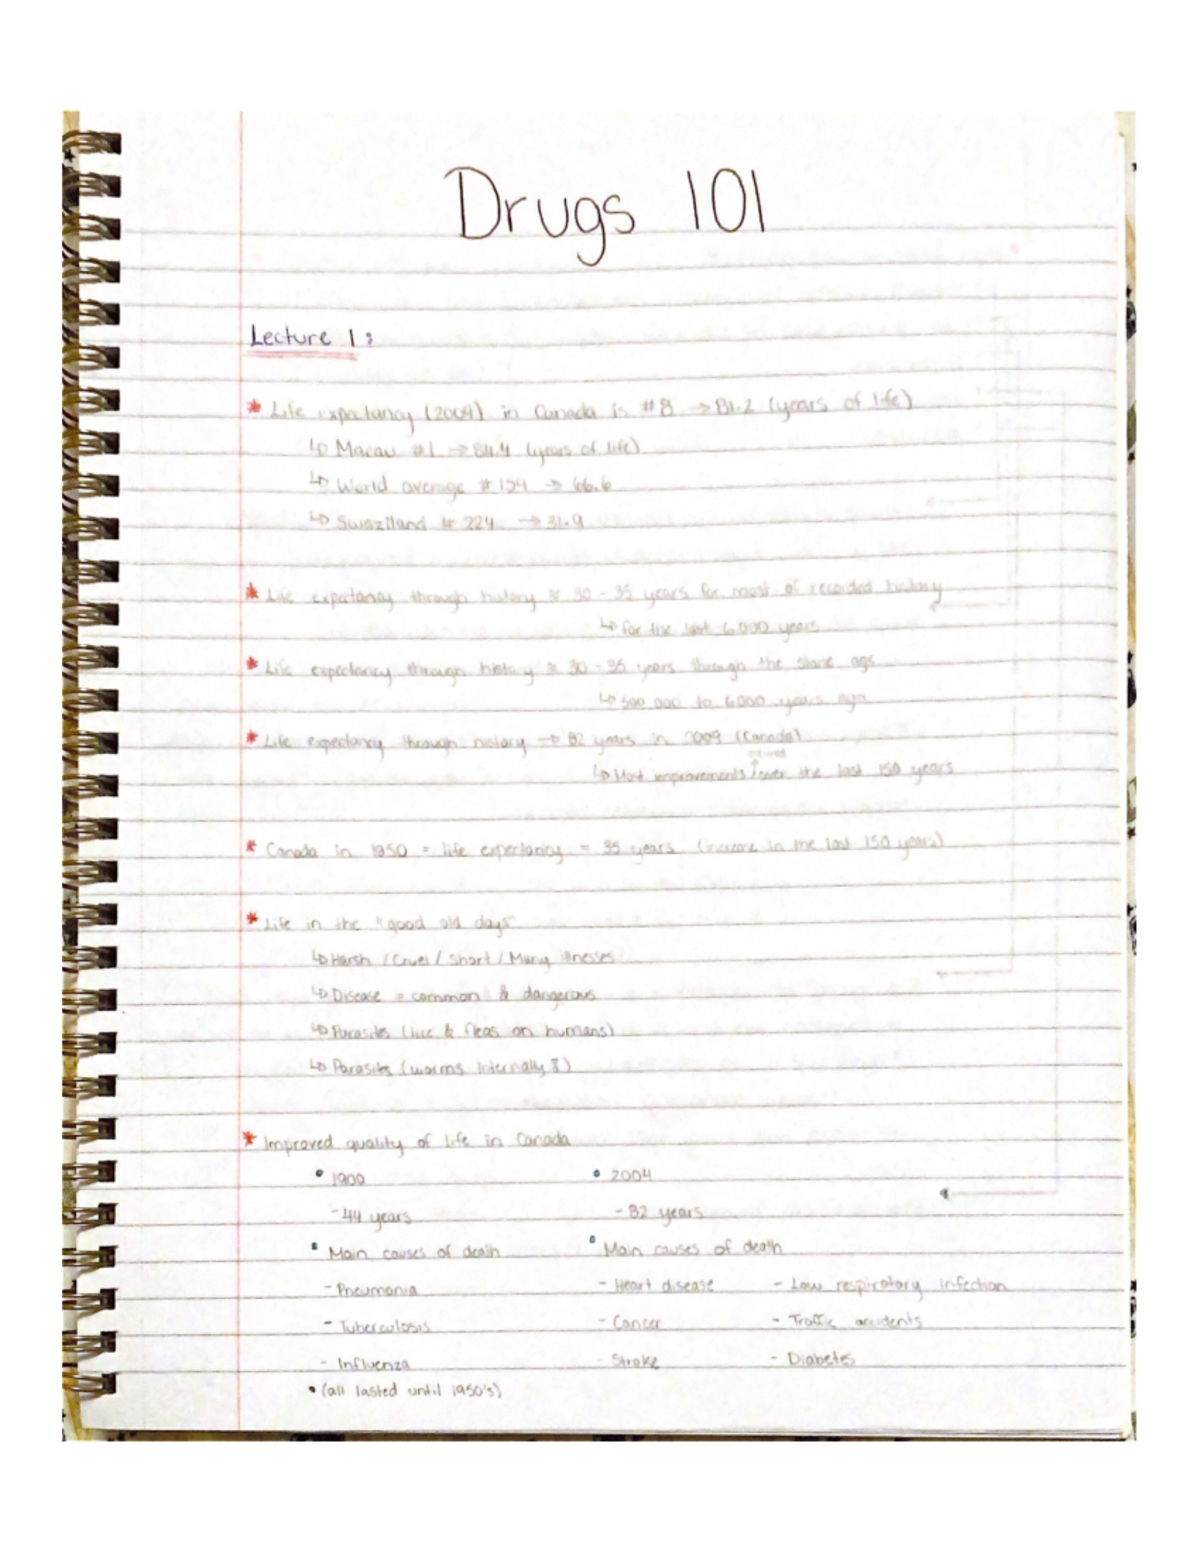 Drugs 101
Lecture 1:
* Life expectancy (2009) in Canada is #8 → 81.2 (years of life)
↳ Macau #1 → 84.4 (years of life)
↳ World average #154 → 66.6
↳ Swaziland # 224 → 31.9
* Life expectancy through history ≈ 30 - 35 years for most of recorded history
↳ for the last 6000 years
* Life expectancy through history ≈ 30 - 35 years through the stone age
↳ 500 000 to 6000 years ago
* Life expectancy through history → 82 years in 2009 (Canada)
↳ Most improvements over the last 150 years
* Canada in 1850 = life expectancy = 35 years (increase in the last 150 years)
* Life in the "good old days"
↳ Harsh / Cruel / Short / Many illnesses
↳ Disease = common & dangerous
↳ Parasites (lice & fleas on humans)
↳ Parasites (worms internally)
* Improved quality of life in Canada
• 1900 • 2004
- 44 years - 82 years
• Main causes of death • Main causes of death
- Pneumonia - Heart disease - Low respiratory infection
- Tuberculosis - Cancer - Traffic accidents
- Influenza - Stroke - Diabetes
• (all lasted until 1950's)